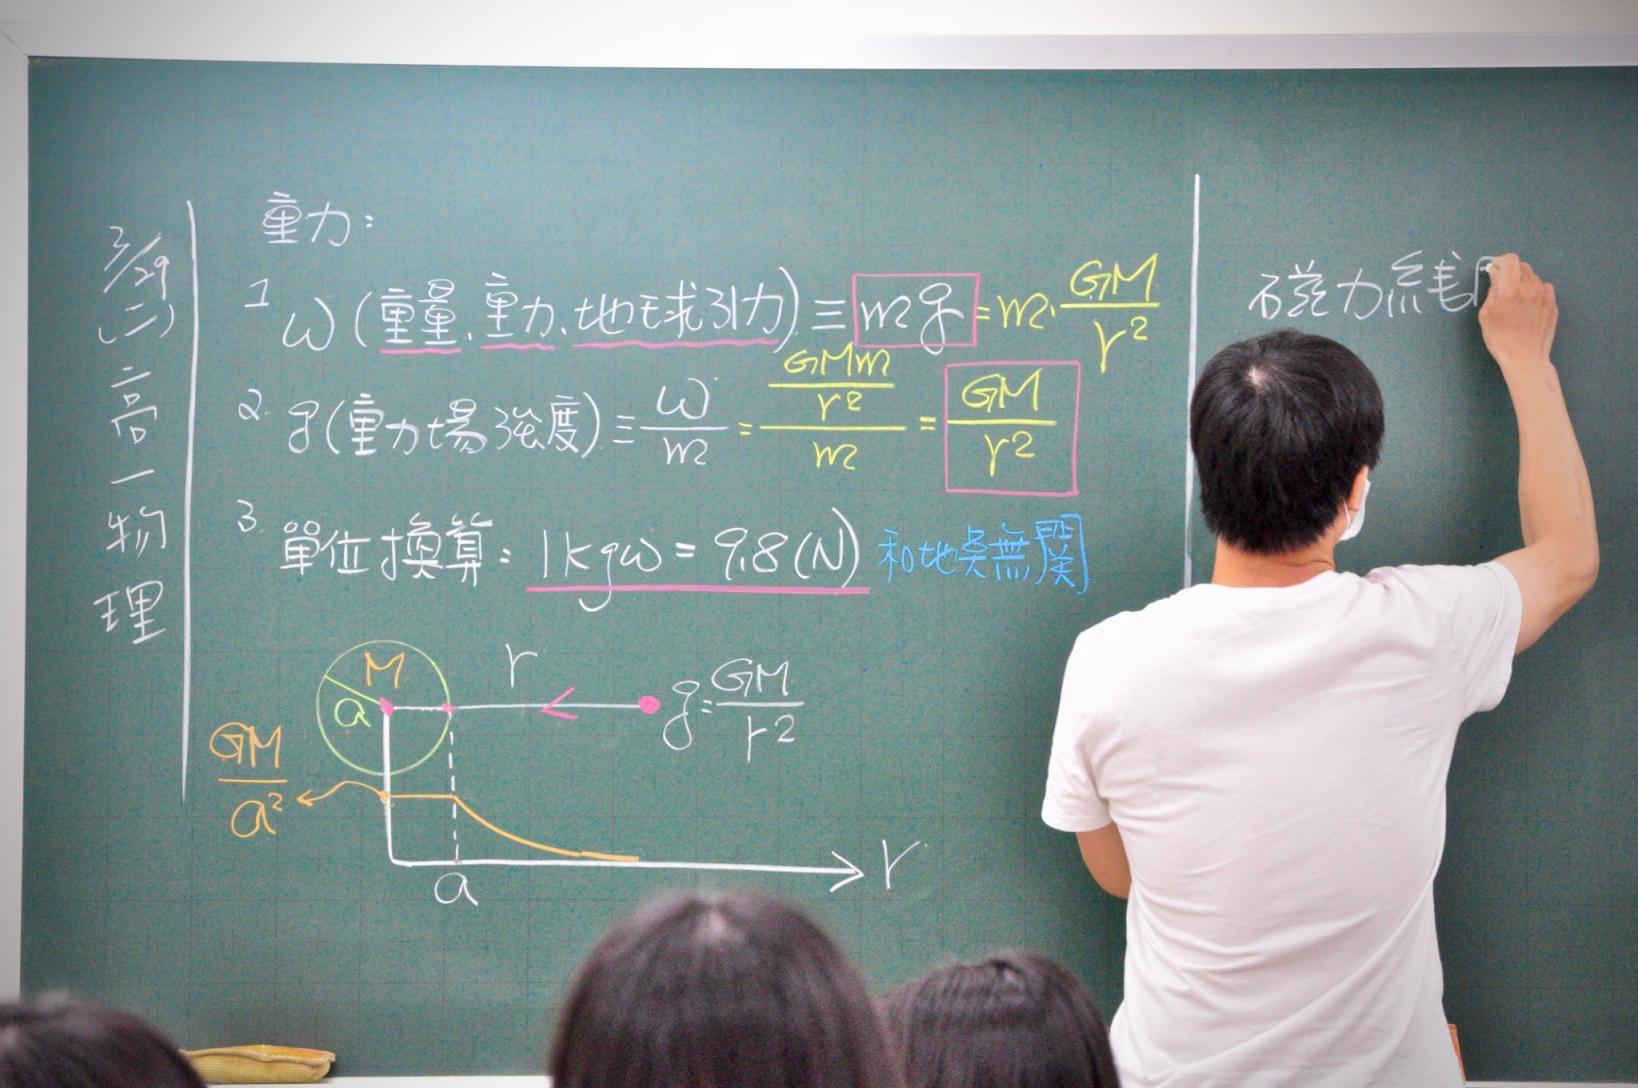 3/29
(二)
高
一
物
理
重力:
1. W(重量、重力、地球引力) ≡ mg = m·GM/r²
2. g(重力場強度) ≡ W/m = (GMm/r²)/m = GM/r²
3. 單位換算: 1kgw = 9.8(N) 和地點無關
M
a
r
g = GM/r²
GM/a²
a
r
磁力線